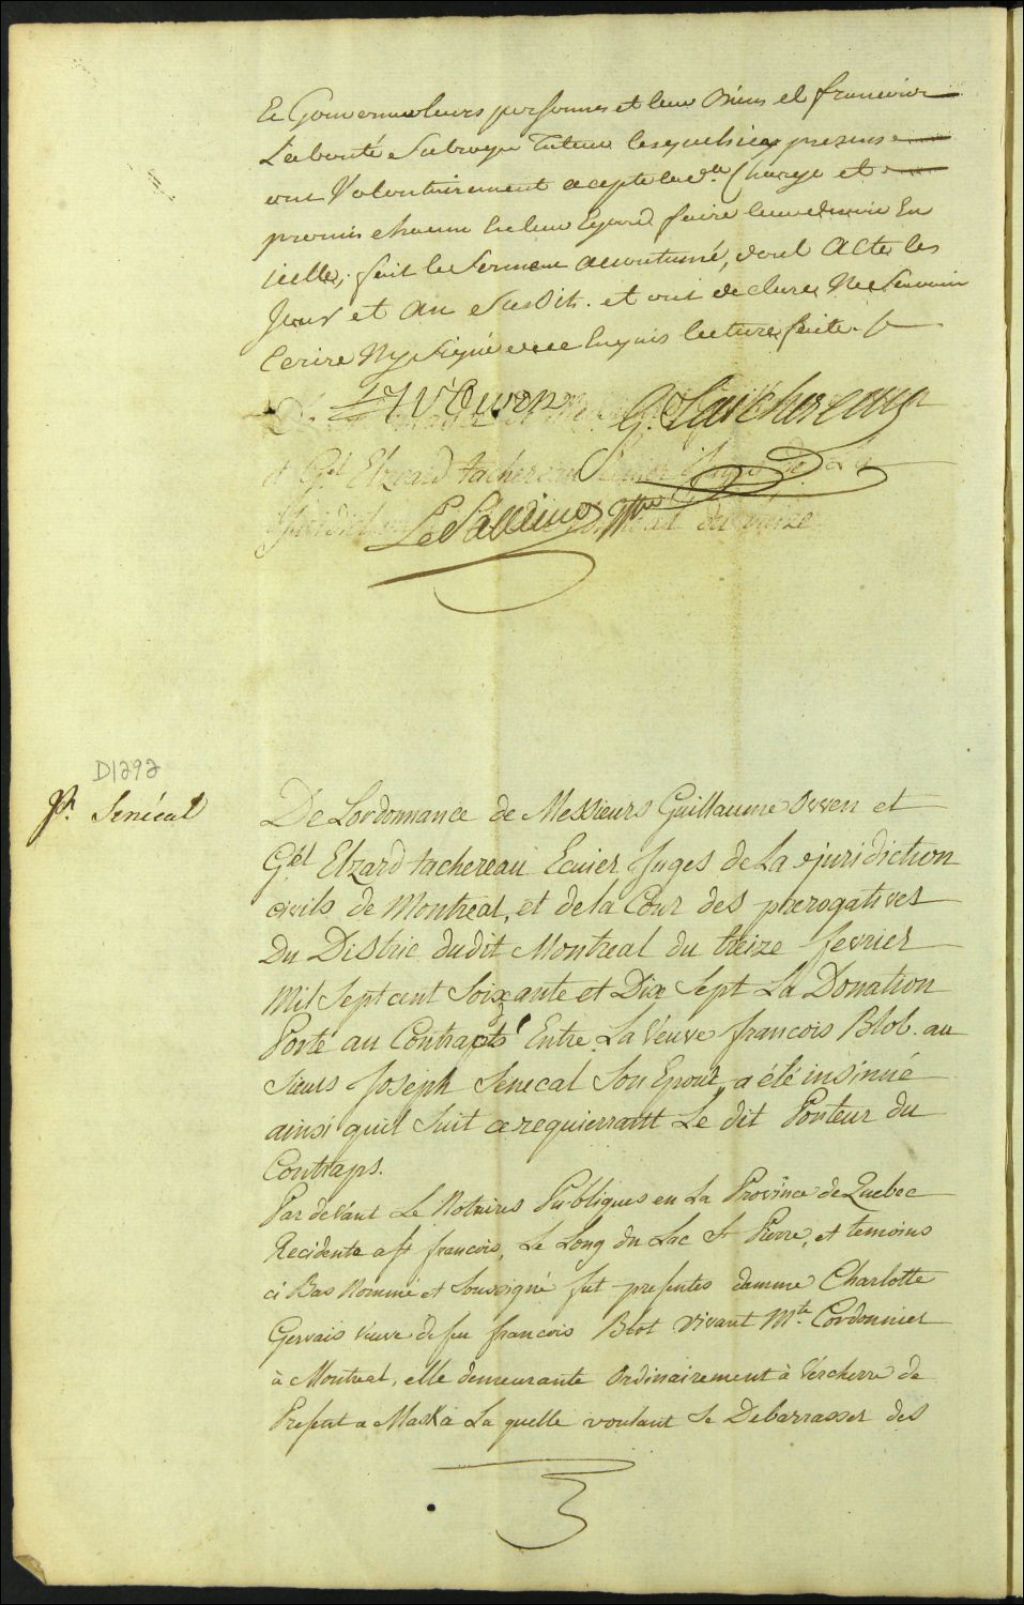 et Gouverner leurs personnes et leur Biens et francois
Laboonté Subrogé Tuteur lesquels icy presens
ont Volontairement acepté lad.te Charge et
promis chacun a leur Egard faire leur devoir En
icelles, fait le Serment acoutumé, dont Acte les
Jour et An Susdit. et ont declarez Ne Scavoir
Ecrire Ny Signé de ce Enquis lecture faite
Wm Owen G. Taschereau
et G.el Elzeard tachereau
LeSaulnier
D1292
Jh. Senécal
De Lordonnance de Messieurs Guillaume Owen et
G.el Elzard tachereau Ecuier Juges de La juridiction
civils de Montreal, et de la Cour des prerogatives
Du Distric dudit Montreal du treize fevrier
Mil Sept cent Soixante et Dix Sept La Donation
Porté au Contracts Entre La Veuve francois Blot au
Sieurs Joseph Senecal Son Epouse a été insinué
ainsi quil Suit a requierrantt Le dit Porteur du
Contraps.
Par devant Le Notaires Publiques en La Province de Quebec
Recidente a St francois, Le Long du Lac St Pierre, et temoins
ci Bas Nommé et Soussigné fut presentes damme Charlotte
Gervais Veuve de feu francois Blot vivant M.te Cordonnier
à Montreal, elle demeurante Ordinairement à Vercherre de
Present a Maska La quelle voulant Se Debarrasser des